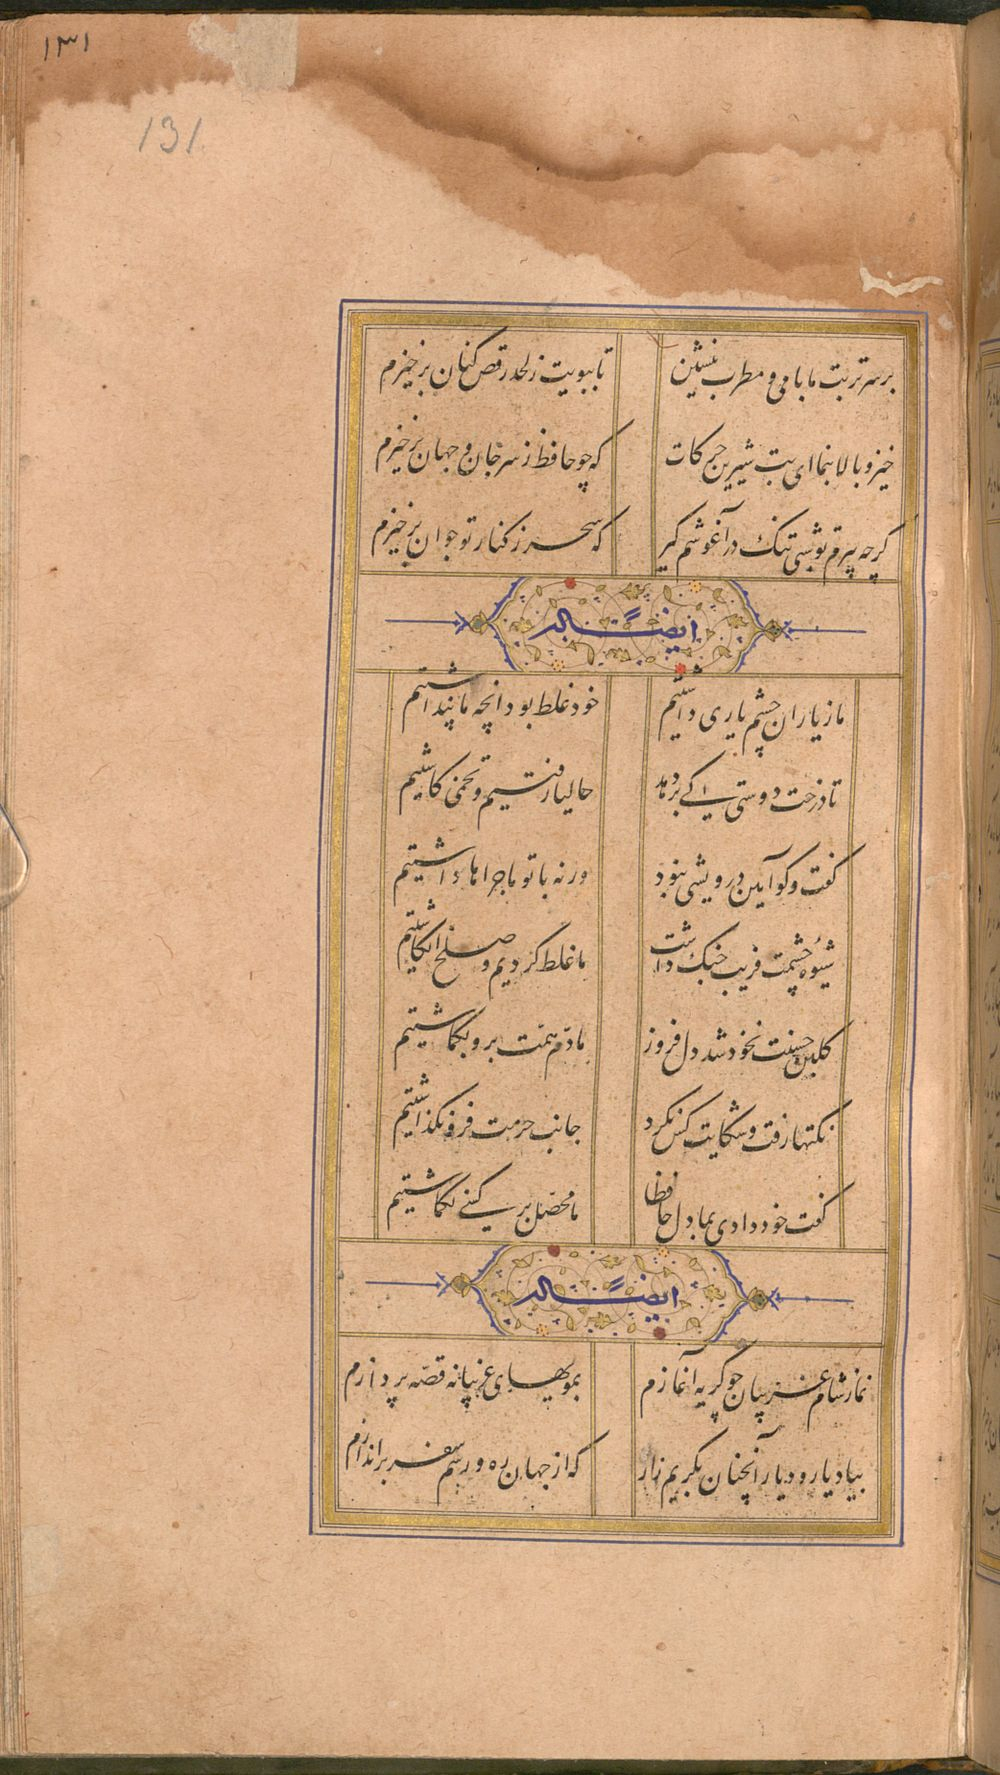 ۱۳۱
131
بر سر تربت ما با می و مطرب بنشین تا ببویت ز لحد رقص کنان برخیزم
خیز و بالا بنما ای بت شیرین حرکات که چو حافظ ز سر جان و جهان برخیزم
کرچه پیرم تو شبی تنک در آغوشم کیر که سحر ز کنار تو جوان برخیزم
ایضاً له
ما ز یاران چشم یاری داشتیم خود غلط بود آنچه ما پنداشتیم
تا درخت دوستی کی بر دهد حالیا رفتیم و تخمی کاشتیم
کفت و کو آیین درویشی نبود ورنه با تو ماجراها داشتیم
شیوهٔ چشمت فریب جنک داشت ما غلط کردیم و صلح انکاشتیم
کلبن حسنت نخود شد دل فروز ما دم همت برو بکماشتیم
نکتها رفت و شکایت کس نکرد جانب حرمت فرو نکذاشتیم
کفت خود دادی بما دل حافظا ما محصل بر کسی نکماشتیم
ایضاً له
نماز شام غریبان چو کریه آغازم بمویهای غریبانه قصّه پردازم
بیاد یار و دیار آنچنان بکریم زار که از جهان ره و رسم سفر براندازم